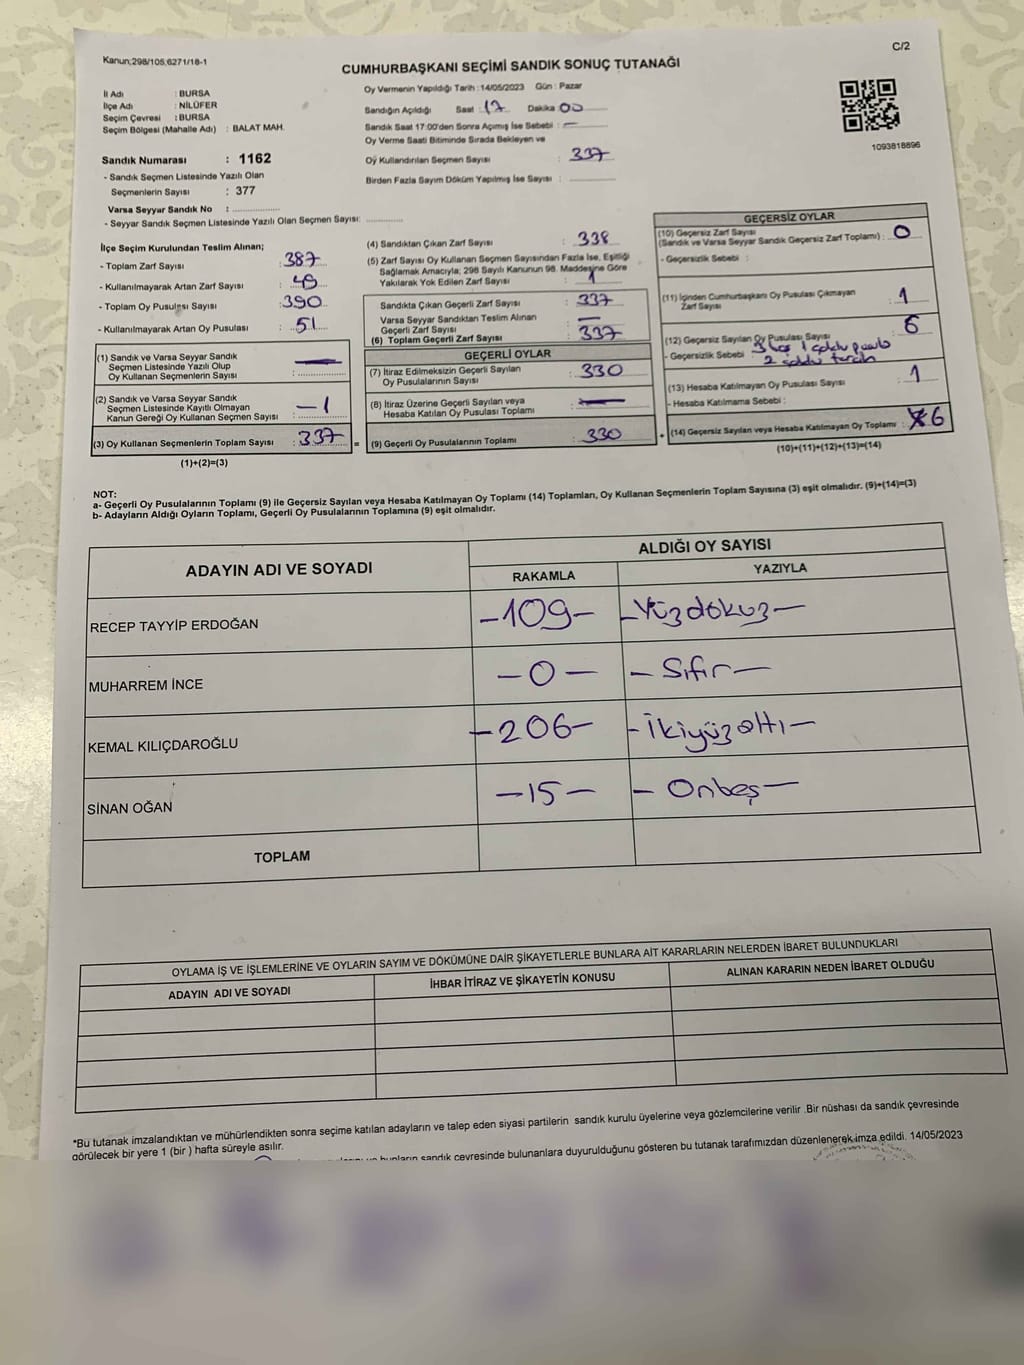 Kanun;298/105;6271/18-1
C/2
CUMHURBAŞKANI SEÇİMİ SANDIK SONUÇ TUTANAĞI
İl Adı : BURSA
İlçe Adı : NİLÜFER
Seçim Çevresi : BURSA
Seçim Bölgesi (Mahalle Adı) : BALAT MAH.
Sandık Numarası : 1162
- Sandık Seçmen Listesinde Yazılı Olan
Seçmenlerin Sayısı : 377
Varsa Seyyar Sandık No : ...............
- Seyyar Sandık Seçmen Listesinde Yazılı Olan Seçmen Sayısı: ............
Oy Vermenin Yapıldığı Tarih :14/05/2023 Gün : Pazar
Sandığın Açıldığı Saat : 17 Dakika 00
Sandık Saat 17:00'den Sonra Açımış İse Sebebi : —
Oy Verme Saati Bitiminde Sırada Bekleyen ve
Oy Kullandırılan Seçmen Sayısı : 337
Birden Fazla Sayım Döküm Yapılmış İse Sayısı : ............
1093818896
İlçe Seçim Kurulundan Teslim Alınan;
- Toplam Zarf Sayısı : 387
- Kullanılmayarak Artan Zarf Sayısı : 49
- Toplam Oy Pusulası Sayısı : 390
- Kullanılmayarak Artan Oy Pusulası : 51
(1) Sandık ve Varsa Seyyar Sandık
Seçmen Listesinde Yazılı Olup
Oy Kullanan Seçmenlerin Sayısı : —
(2) Sandık ve Varsa Seyyar Sandık
Seçmen Listesinde Kayıtlı Olmayan
Kanun Gereği Oy Kullanan Seçmen Sayısı : — 1
(3) Oy Kullanan Seçmenlerin Toplam Sayısı : 337 =
(1)+(2)=(3)
(4) Sandıktan Çıkan Zarf Sayısı : 338
(5) Zarf Sayısı Oy Kullanan Seçmen Sayısından Fazla İse, Eşitliği
Sağlamak Amacıyla; 298 Sayılı Kanunun 98. Maddesine Göre
Yakılarak Yok Edilen Zarf Sayısı : 1
Sandıkta Çıkan Geçerli Zarf Sayısı : 337
Varsa Seyyar Sandıktan Teslim Alınan
Geçerli Zarf Sayısı : —
(6) Toplam Geçerli Zarf Sayısı : 337
GEÇERLİ OYLAR
(7) İtiraz Edilmeksizin Geçerli Sayılan
Oy Pusulalarının Sayısı : 330
(8) İtiraz Üzerine Geçerli Sayılan veya
Hesaba Katılan Oy Pusulası Toplamı : —
(9) Geçerli Oy Pusulalarının Toplamı : 330 +
GEÇERSİZ OYLAR
(10) Geçersiz Zarf Sayısı
(Sandık ve Varsa Seyyar Sandık Geçersiz Zarf Toplamı) : 0
- Geçersizlik Sebebi :
(11) İçinden Cumhurbaşkanı Oy Pusulası Çıkmayan
Zarf Sayısı : 1
(12) Geçersiz Sayılan Oy Pusulası Sayısı : 6
- Geçersizlik Sebebi : 3 boş 1
2 tercih
(13) Hesaba Katılmayan Oy Pusulası Sayısı : 1
- Hesaba Katılmama Sebebi :
(14) Geçersiz Sayılan veya Hesaba Katılmayan Oy Toplamı : 6
(10)+(11)+(12)+(13)=(14)
NOT:
a- Geçerli Oy Pusulalarının Toplamı (9) ile Geçersiz Sayılan veya Hesaba Katılmayan Oy Toplamı (14) Toplamları, Oy Kullanan Seçmenlerin Toplam Sayısına (3) eşit olmalıdır. (9)+(14)=(3)
b- Adayların Aldığı Oyların Toplamı, Geçerli Oy Pusulalarının Toplamına (9) eşit olmalıdır.
ADAYIN ADI VE SOYADI
ALDIĞI OY SAYISI
RAKAMLA YAZIYLA
RECEP TAYYİP ERDOĞAN -109- -Yüzdokuz-
MUHARREM İNCE -0- - Sıfır-
KEMAL KILIÇDAROĞLU -206- -İkiyüzaltı-
SİNAN OĞAN -15- - Onbeş-
TOPLAM
OYLAMA İŞ VE İŞLEMLERİNE VE OYLARIN SAYIM VE DÖKÜMÜNE DAİR ŞİKAYETLERLE BUNLARA AİT KARARLARIN NELERDEN İBARET BULUNDUKLARI
ADAYIN ADI VE SOYADI İHBAR İTİRAZ VE ŞİKAYETİN KONUSU ALINAN KARARIN NEDEN İBARET OLDUĞU
*Bu tutanak imzalandıktan ve mühürlendikten sonra seçime katılan adayların ve talep eden siyasi partilerin sandık kurulu üyelerine veya gözlemcilerine verilir .Bir nüshası da sandık çevresinde
görülecek bir yere 1 (bir ) hafta süreyle asılır.
bunların sandık çevresinde bulunanlara duyurulduğunu gösteren bu tutanak tarafımızdan düzenlenerek imza edildi. 14/05/2023